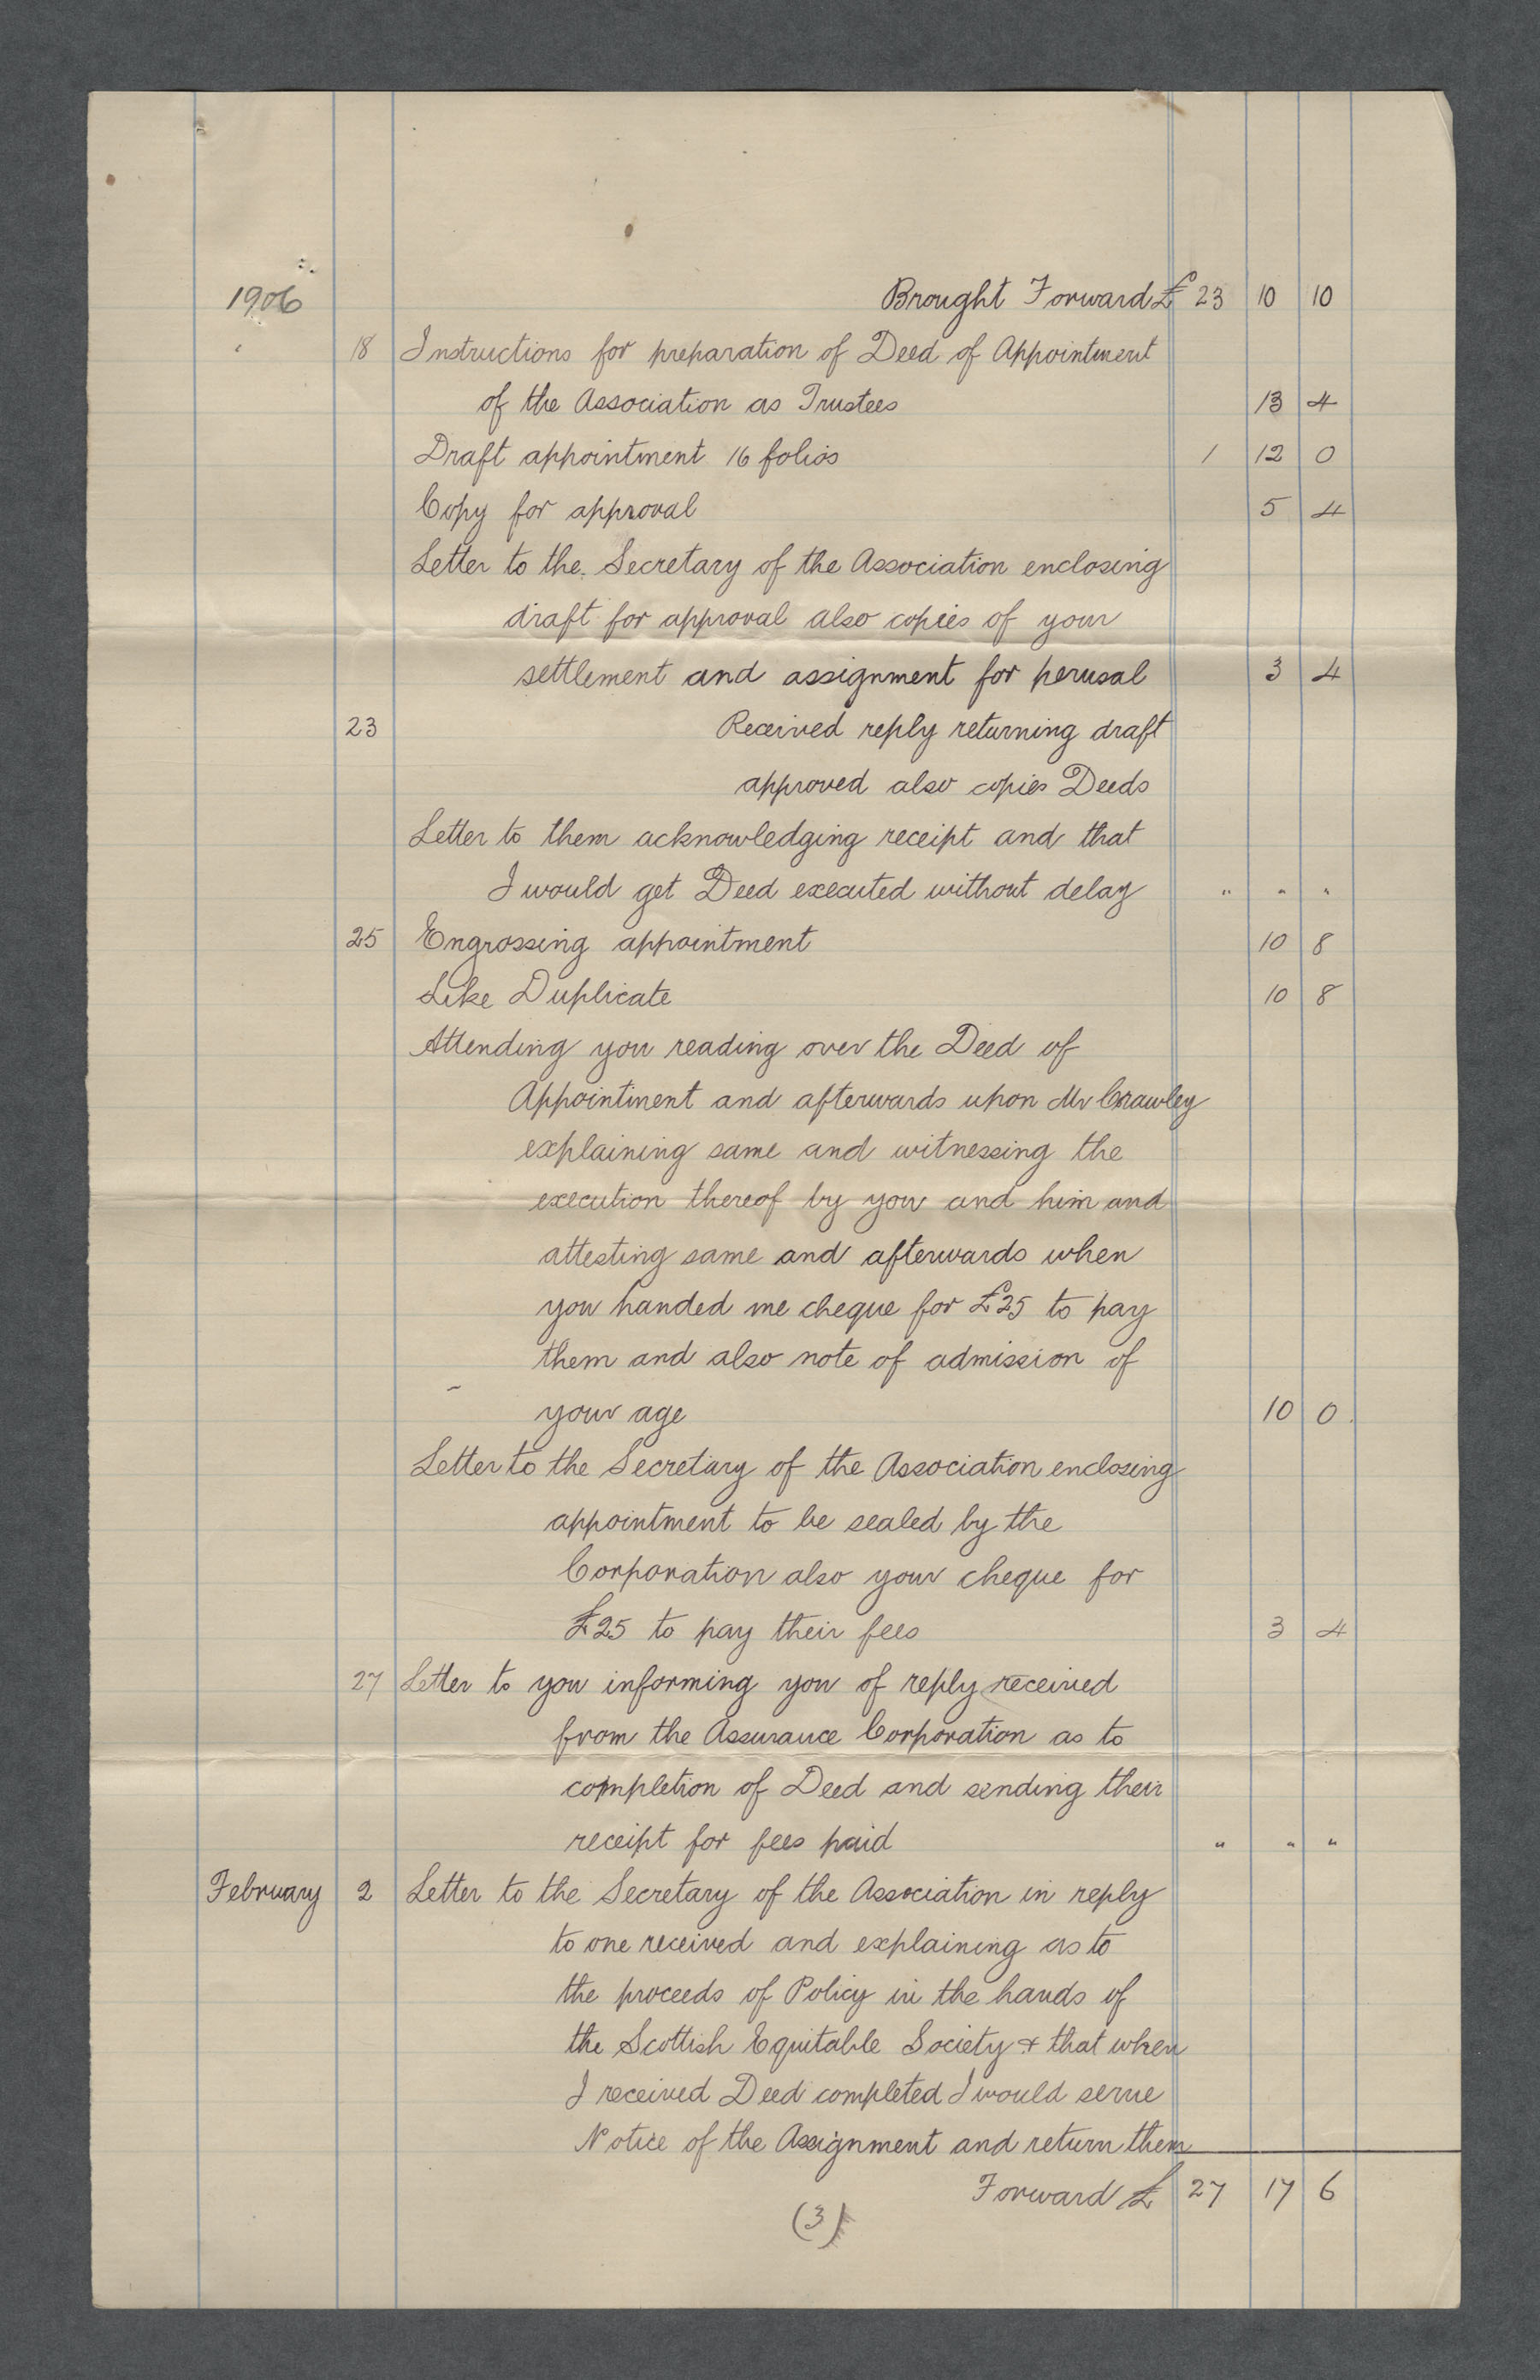 1906 Brought Forward £ 23 10 10
18 Instructions for preparation of Deed of Appointment
of the Association as Trustees 13 4
Draft appointment 16 folios 1 12 0
Copy for approval 5 4
Letter to the Secretary of the Association enclosing
draft for approval also copies of your
settlement and assignment for perusal 3 4
23 Received reply returning draft
approved also copies Deeds
Letter to them acknowledging receipt and that
I would get Deed executed without delay " " "
25 Engrossing appointment 10 8
Like Duplicate 10 8
Attending you reading over the Deed of
Appointment and afterwards upon Mr Crawley
explaining same and witnessing the
execution thereof by you and him and
attesting same and afterwards when
you handed me cheque for £25 to pay
them and also note of admission of
your age 10 0
Letter to the Secretary of the Association enclosing
appointment to be sealed by the
Corporation also your cheque for
£25 to pay their fees 3 4
27 Letter to you informing you of reply received
from the Assurance Corporation as to
completion of Deed and sending their
receipt for fees paid " " "
February 2 Letter to the Secretary of the Association in reply
to one received and explaining as to
the proceeds of Policy in the hands of
the Scottish Equitable Society & that when
I received Deed completed I would serve
Notice of the Assignment and return them
Forward £ 27 17 6
(3)